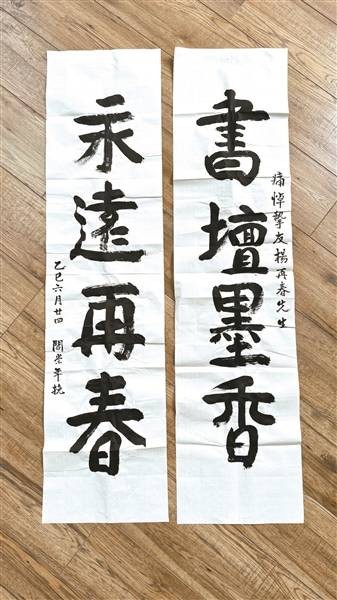 痛悼挚友楊再春先生
書壇墨香
永遠再春
乙巳六月廿四 閻崇年挽